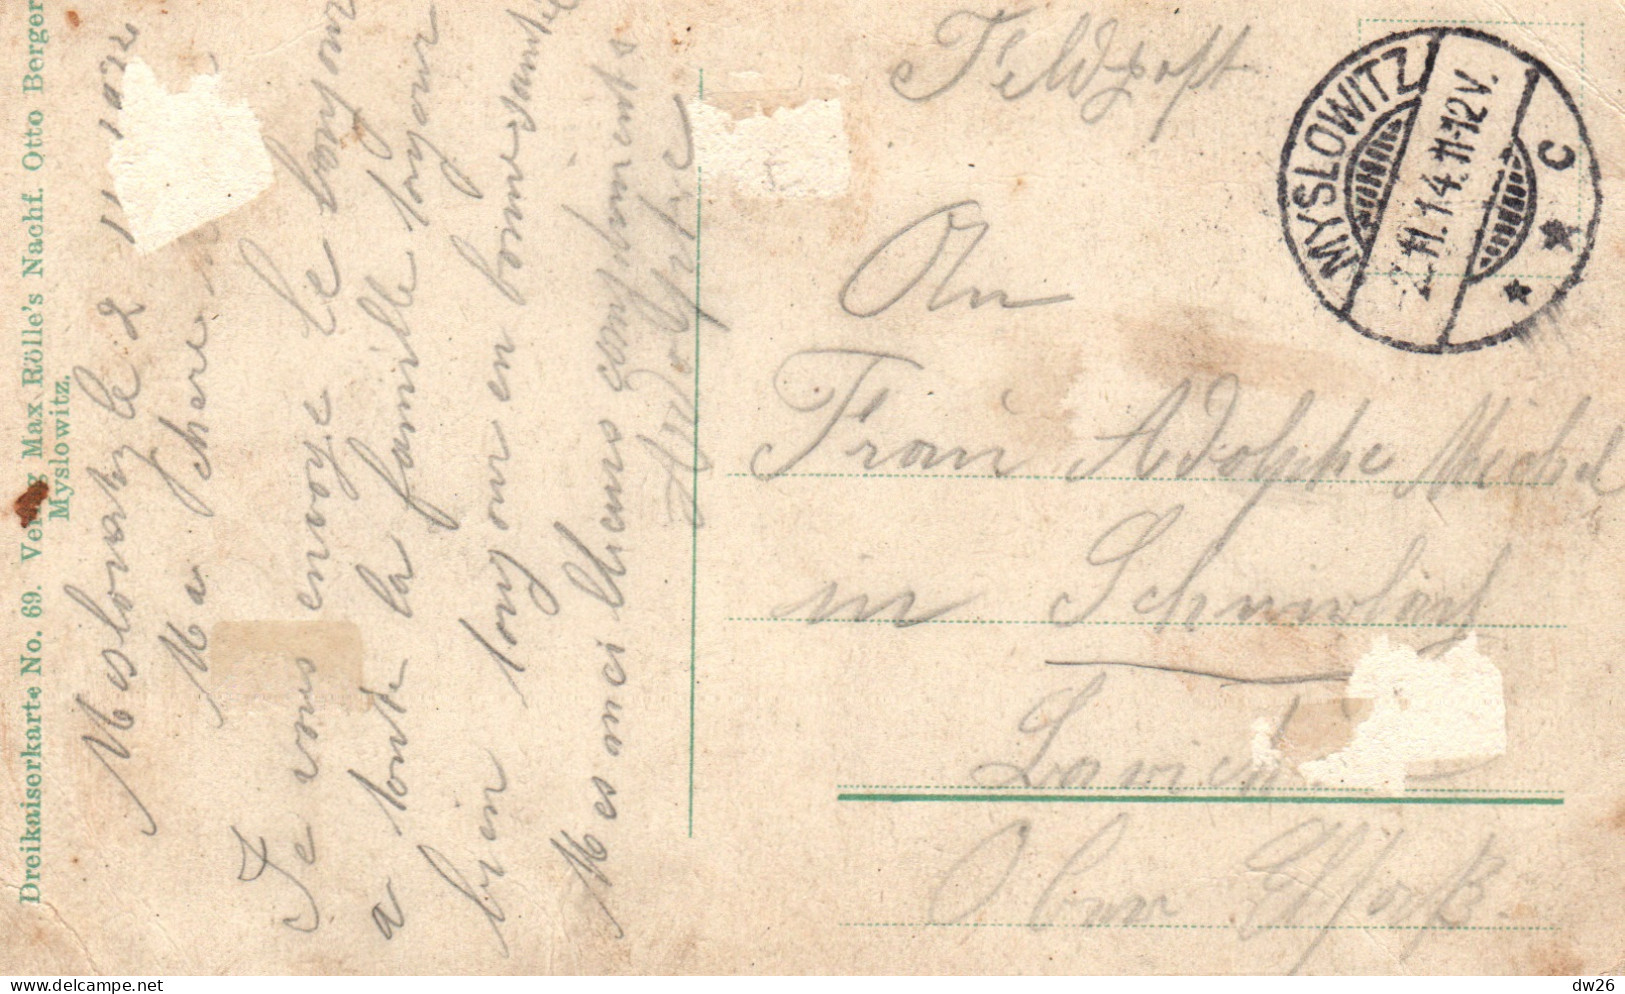 Dreikaiserkarte No. 69. Verlag Max Rölle's Nachf. Otto Berger
Myslowitz.
Meslowitz le 2 11 1914
Ma chere
Je vous envoye le bonjour
a toute la famille toujour
bien toujour en bonne santé
Mes meilleurs compliments
Adolphe
Feldpost
MYSLOWITZ
2.11.14.11-12V.
* c *
An
Frau Adolphe Michel
in
Ober Elsaß
delcampe.net
dw26